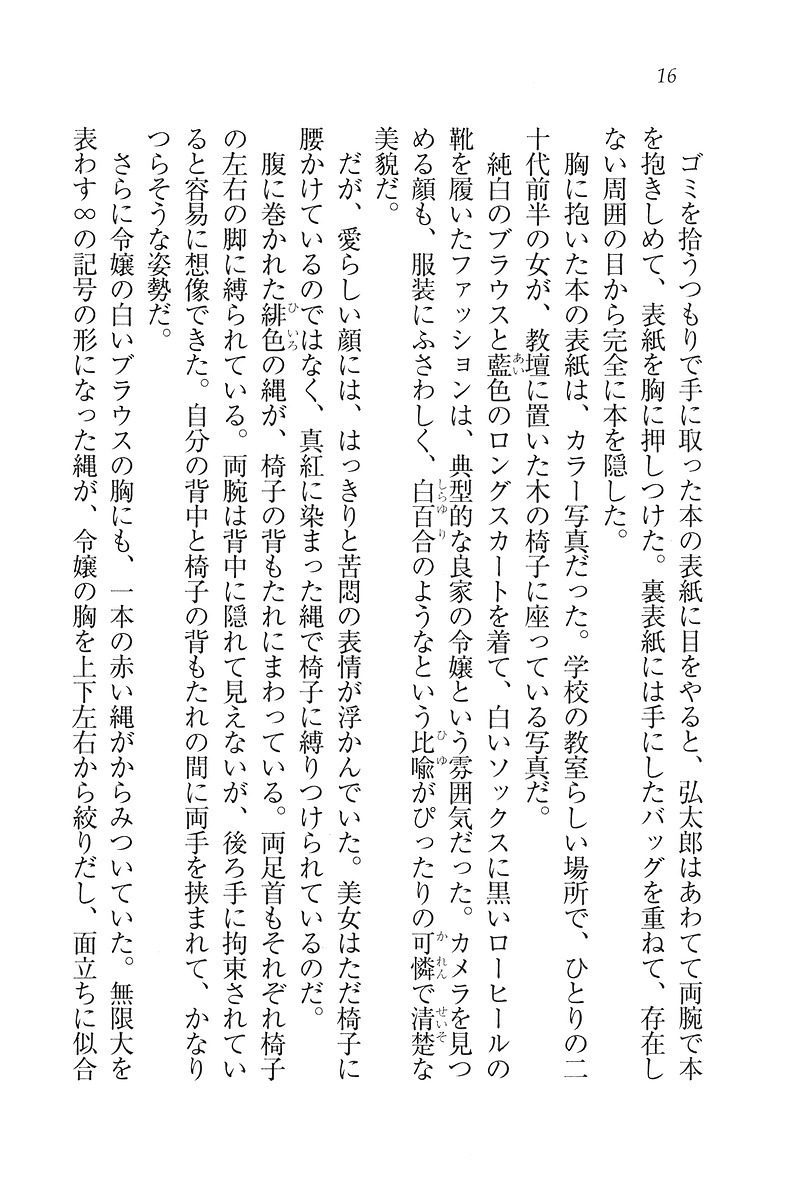 16
ゴミを拾うつもりで手に取った本の表紙に目をやると、弘太郎はあわてて両腕で本
を抱きしめて、表紙を胸に押しつけた。裏表紙には手にしたバッグを重ねて、存在し
ない周囲の目から完全に本を隠した。
胸に抱いた本の表紙は、カラー写真だった。学校の教室らしい場所で、ひとりの二
十代前半の女が、教壇に置いた木の椅子に座っている写真だ。
純白のブラウスと藍色のロングスカートを着て、白いソックスに黒いローヒールの
靴を履いたファッションは、典型的な良家の令嬢という雰囲気だった。カメラを見つ
める顔も、服装にふさわしく、白百合のようなという比喩がぴったりの可憐で清楚な
美貌だ。
だが、愛らしい顔には、はっきりと苦悶の表情が浮かんでいた。美女はただ椅子に
腰かけているのではなく、真紅に染まった縄で椅子に縛りつけられているのだ。
腹に巻かれた緋色の縄が、椅子の背もたれにまわっている。両足首もそれぞれ椅子
の左右の脚に縛られている。両腕は背中に隠れて見えないが、後ろ手に拘束されてい
ると容易に想像できた。自分の背中と椅子の背もたれの間に両手を挟まれて、かなり
つらそうな姿勢だ。
さらに令嬢の白いブラウスの胸にも、一本の赤い縄がからみついていた。無限大を
表わす∞の記号の形になった縄が、令嬢の胸を上下左右から絞りだし、面立ちに似合